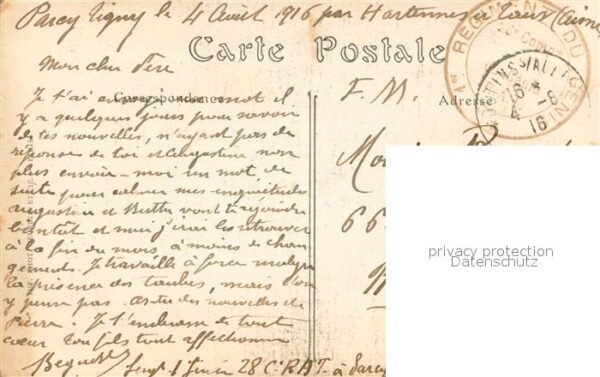 Parcy Tigny le 4 Avril 1916 par Hartennes et Taux (Aisne
Carte Postale
Mon cher Père
Correspondance
Je t'ai envoyé un mot il
y a quelques jours pour savoir
des tes nouvelles, n'ayant pas de
réponse de toi et Augustine non
plus envoie-moi un mot de
suite pour calmer mes inquiétudes
Augustine et vont te rejoindre
bientôt et moi j'irai les retrouver
à la fin du mois, à moins de chan
gement. Je travaille à force malgré
la présence des taubes, mais on
y pense pas. As-tu des nouvelles de
Pierre. Je t'embrasse de tout
coeur ton fils tout affectionné
Sergt 1er Génie 28 Cie à Parcy
F. M.
Adresse
66
1er REGIMENT DU GENIE
16 *
4 - 6
16
privacy protection
Datenschutz